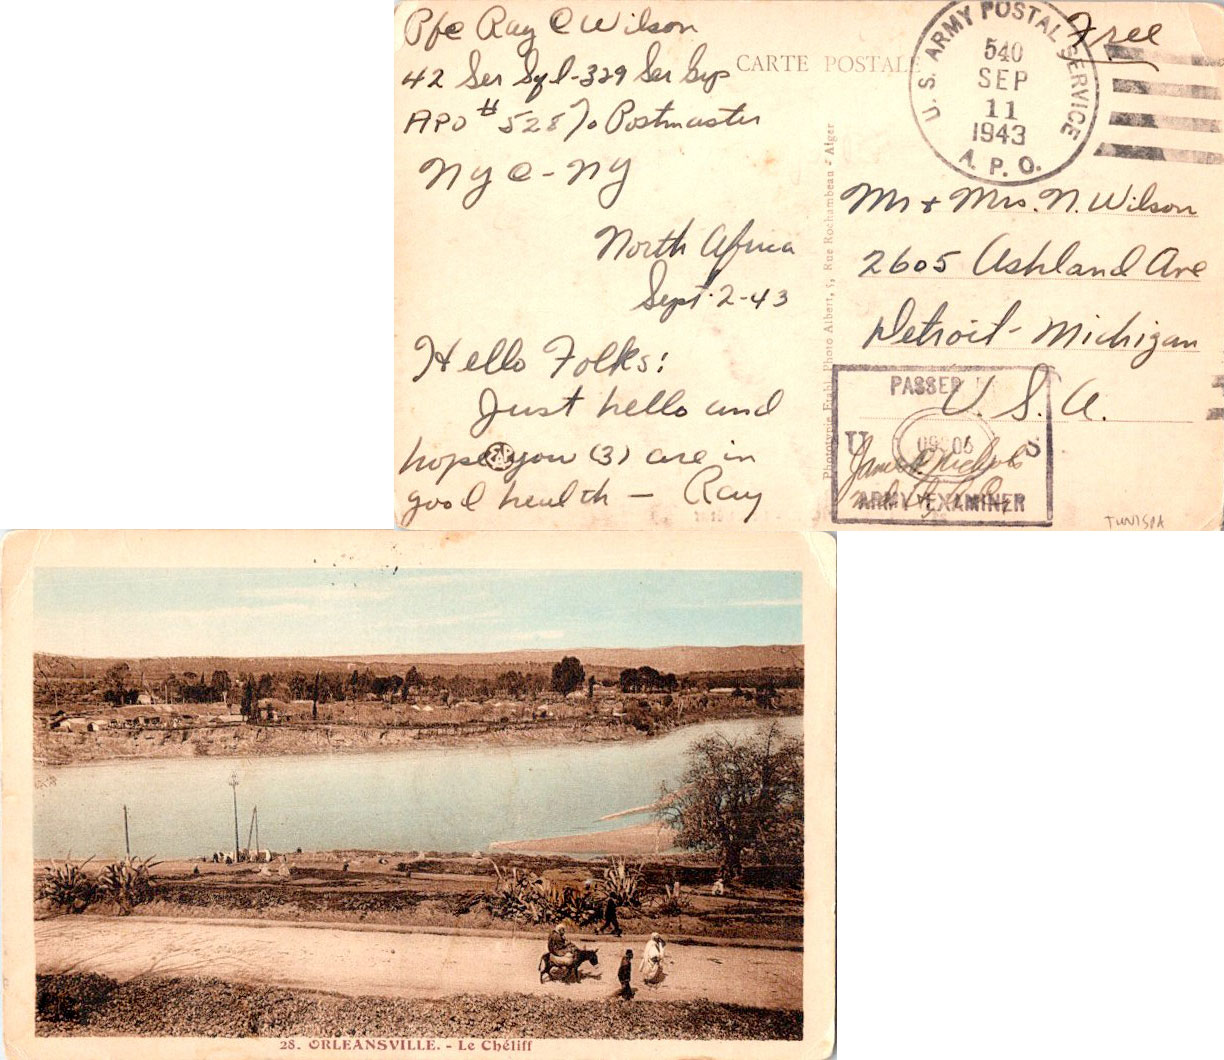 Pfc Ray C Wilson
42 Ser Sqd-329 Ser Grp
APO #528 % Postmaster
NYC-NY
North Africa
Sept-2-43
Hello Folks:
Just hello and
hope you (3) are in
good health - Ray
CARTE POSTALE
Phototypie Etabl. Photo Albert, 5, Rue Rochambeau - Alger
Free
U. S. ARMY POSTAL SERVICE
540
SEP
11
1943
A. P. O.
Mr + Mrs. N. Wilson
2605 Ashland Ave
Detroit - Michigan
U. S. A.
PASSED
U S
James Nichols
ARMY EXAMINER
TUNISIA
28. ORLEANSVILLE. - Le Chéliff